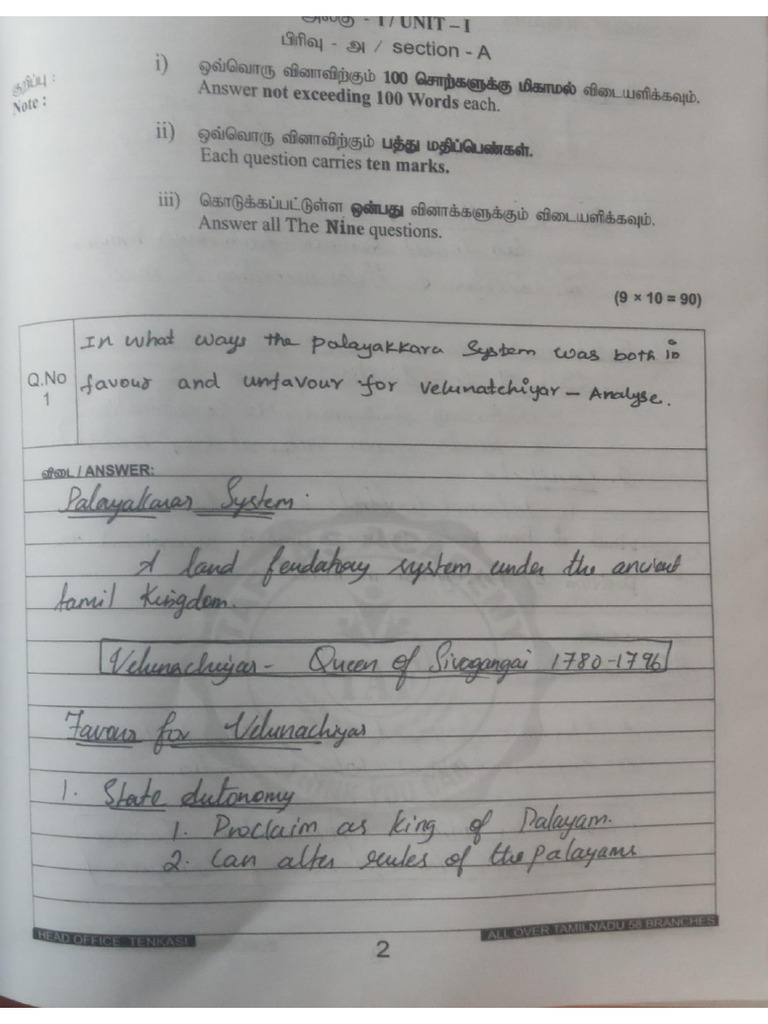 அலகு - I / UNIT – I
பிரிவு - அ / section - A
குறிப்பு :
Note :
i) ஒவ்வொரு வினாவிற்கும் 100 சொற்களுக்கு மிகாமல் விடையளிக்கவும்.
Answer not exceeding 100 Words each.
ii) ஒவ்வொரு வினாவிற்கும் பத்து மதிப்பெண்கள்.
Each question carries ten marks.
iii) கொடுக்கப்பட்டுள்ள ஒன்பது வினாக்களுக்கும் விடையளிக்கவும்.
Answer all The Nine questions.
(9 × 10 = 90)
Q.No
1
In what ways the palayakkara System was both in
favour and unfavour for Velunatchiyar – Analyse.
விடை / ANSWER:
Palayakarar System.
A land feudatory system under the ancient
tamil kingdom.
Velunachiyar - Queen of Sivagangai 1780-1796
Favour for Velunachiyar
1. State Autonomy
1. Proclaim as king of Palayam.
2. Can alter rules of the palayams
HEAD OFFICE TENKASI
2
ALL OVER TAMILNADU 58 BRANCHES